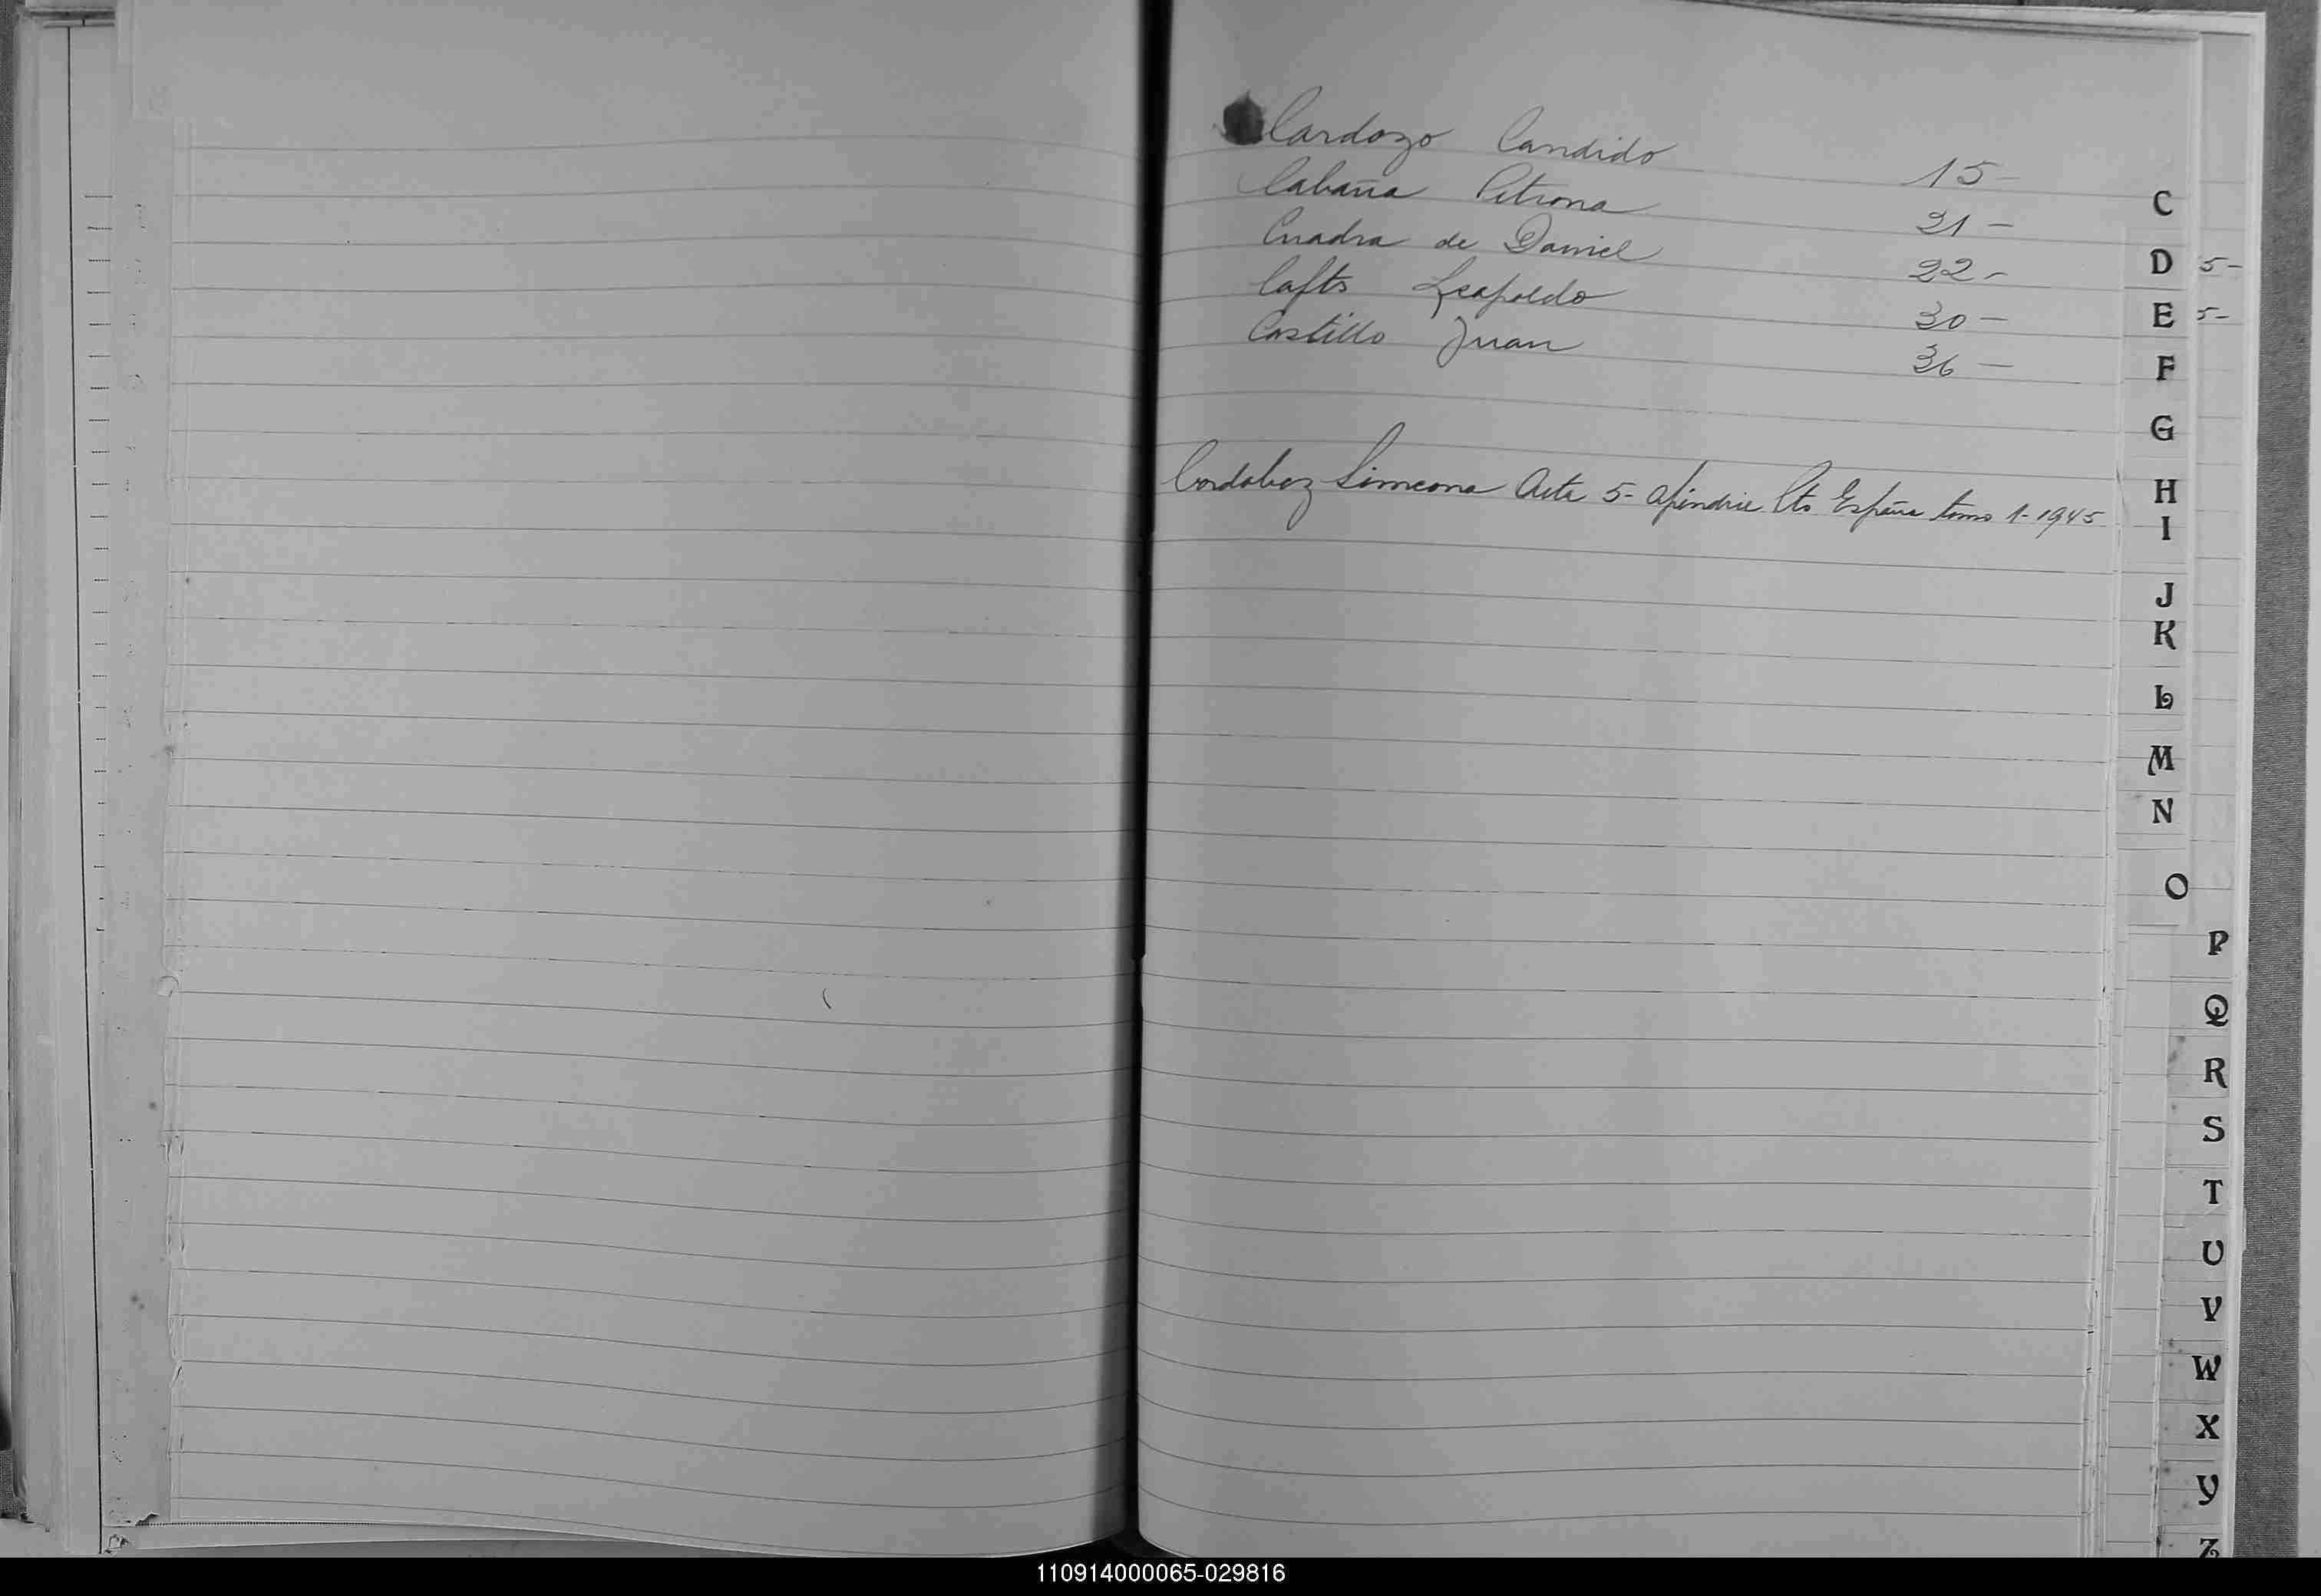 Cardozo Candido 15-
Cabaña Petrona 21-
Cuadra de Daniel 22-
Cafts Leopoldo 30-
Castillo Juan 36-
Cordobez Simeona Acta 5- apéndice Cto España tomo 1-1945
C
D 5-
E 5-
F
G
H
I
J
K
L
M
N
O
P
Q
R
S
T
U
V
W
X
Y
Z
110914000065-029816